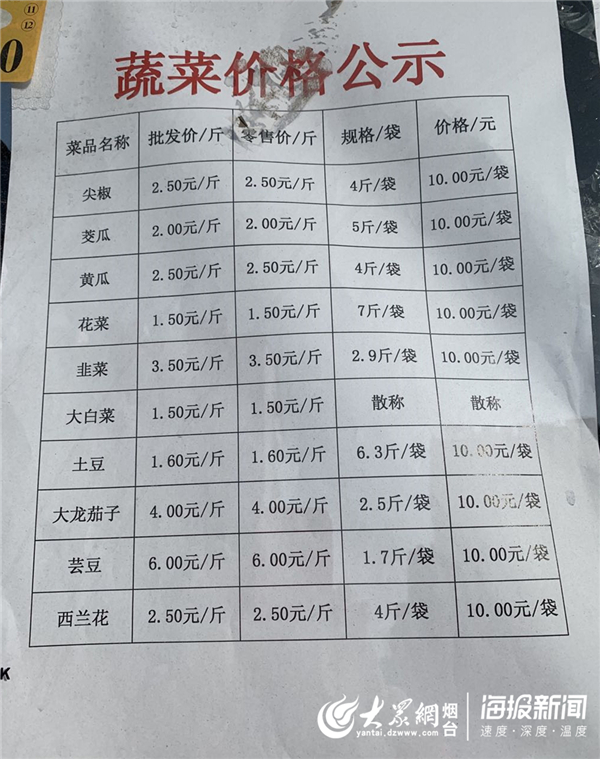 ⑪
⑫
0
蔬菜价格公示
菜品名称 批发价/斤 零售价/斤 规格/袋 价格/元
尖椒 2.50元/斤 2.50元/斤 4斤/袋 10.00元/袋
茭瓜 2.00元/斤 2.00元/斤 5斤/袋 10.00元/袋
黄瓜 2.50元/斤 2.50元/斤 4斤/袋 10.00元/袋
花菜 1.50元/斤 1.50元/斤 7斤/袋 10.00元/袋
韭菜 3.50元/斤 3.50元/斤 2.9斤/袋 10.00元/袋
大白菜 1.50元/斤 1.50元/斤 散称 散称
土豆 1.60元/斤 1.60元/斤 6.3斤/袋 10.00元/袋
大龙茄子 4.00元/斤 4.00元/斤 2.5斤/袋 10.00元/袋
芸豆 6.00元/斤 6.00元/斤 1.7斤/袋 10.00元/袋
西兰花 2.50元/斤 2.50元/斤 4斤/袋 10.00元/袋
K
大眾網 烟台 海报新闻
yantai.dzwww.com 速度·深度·温度